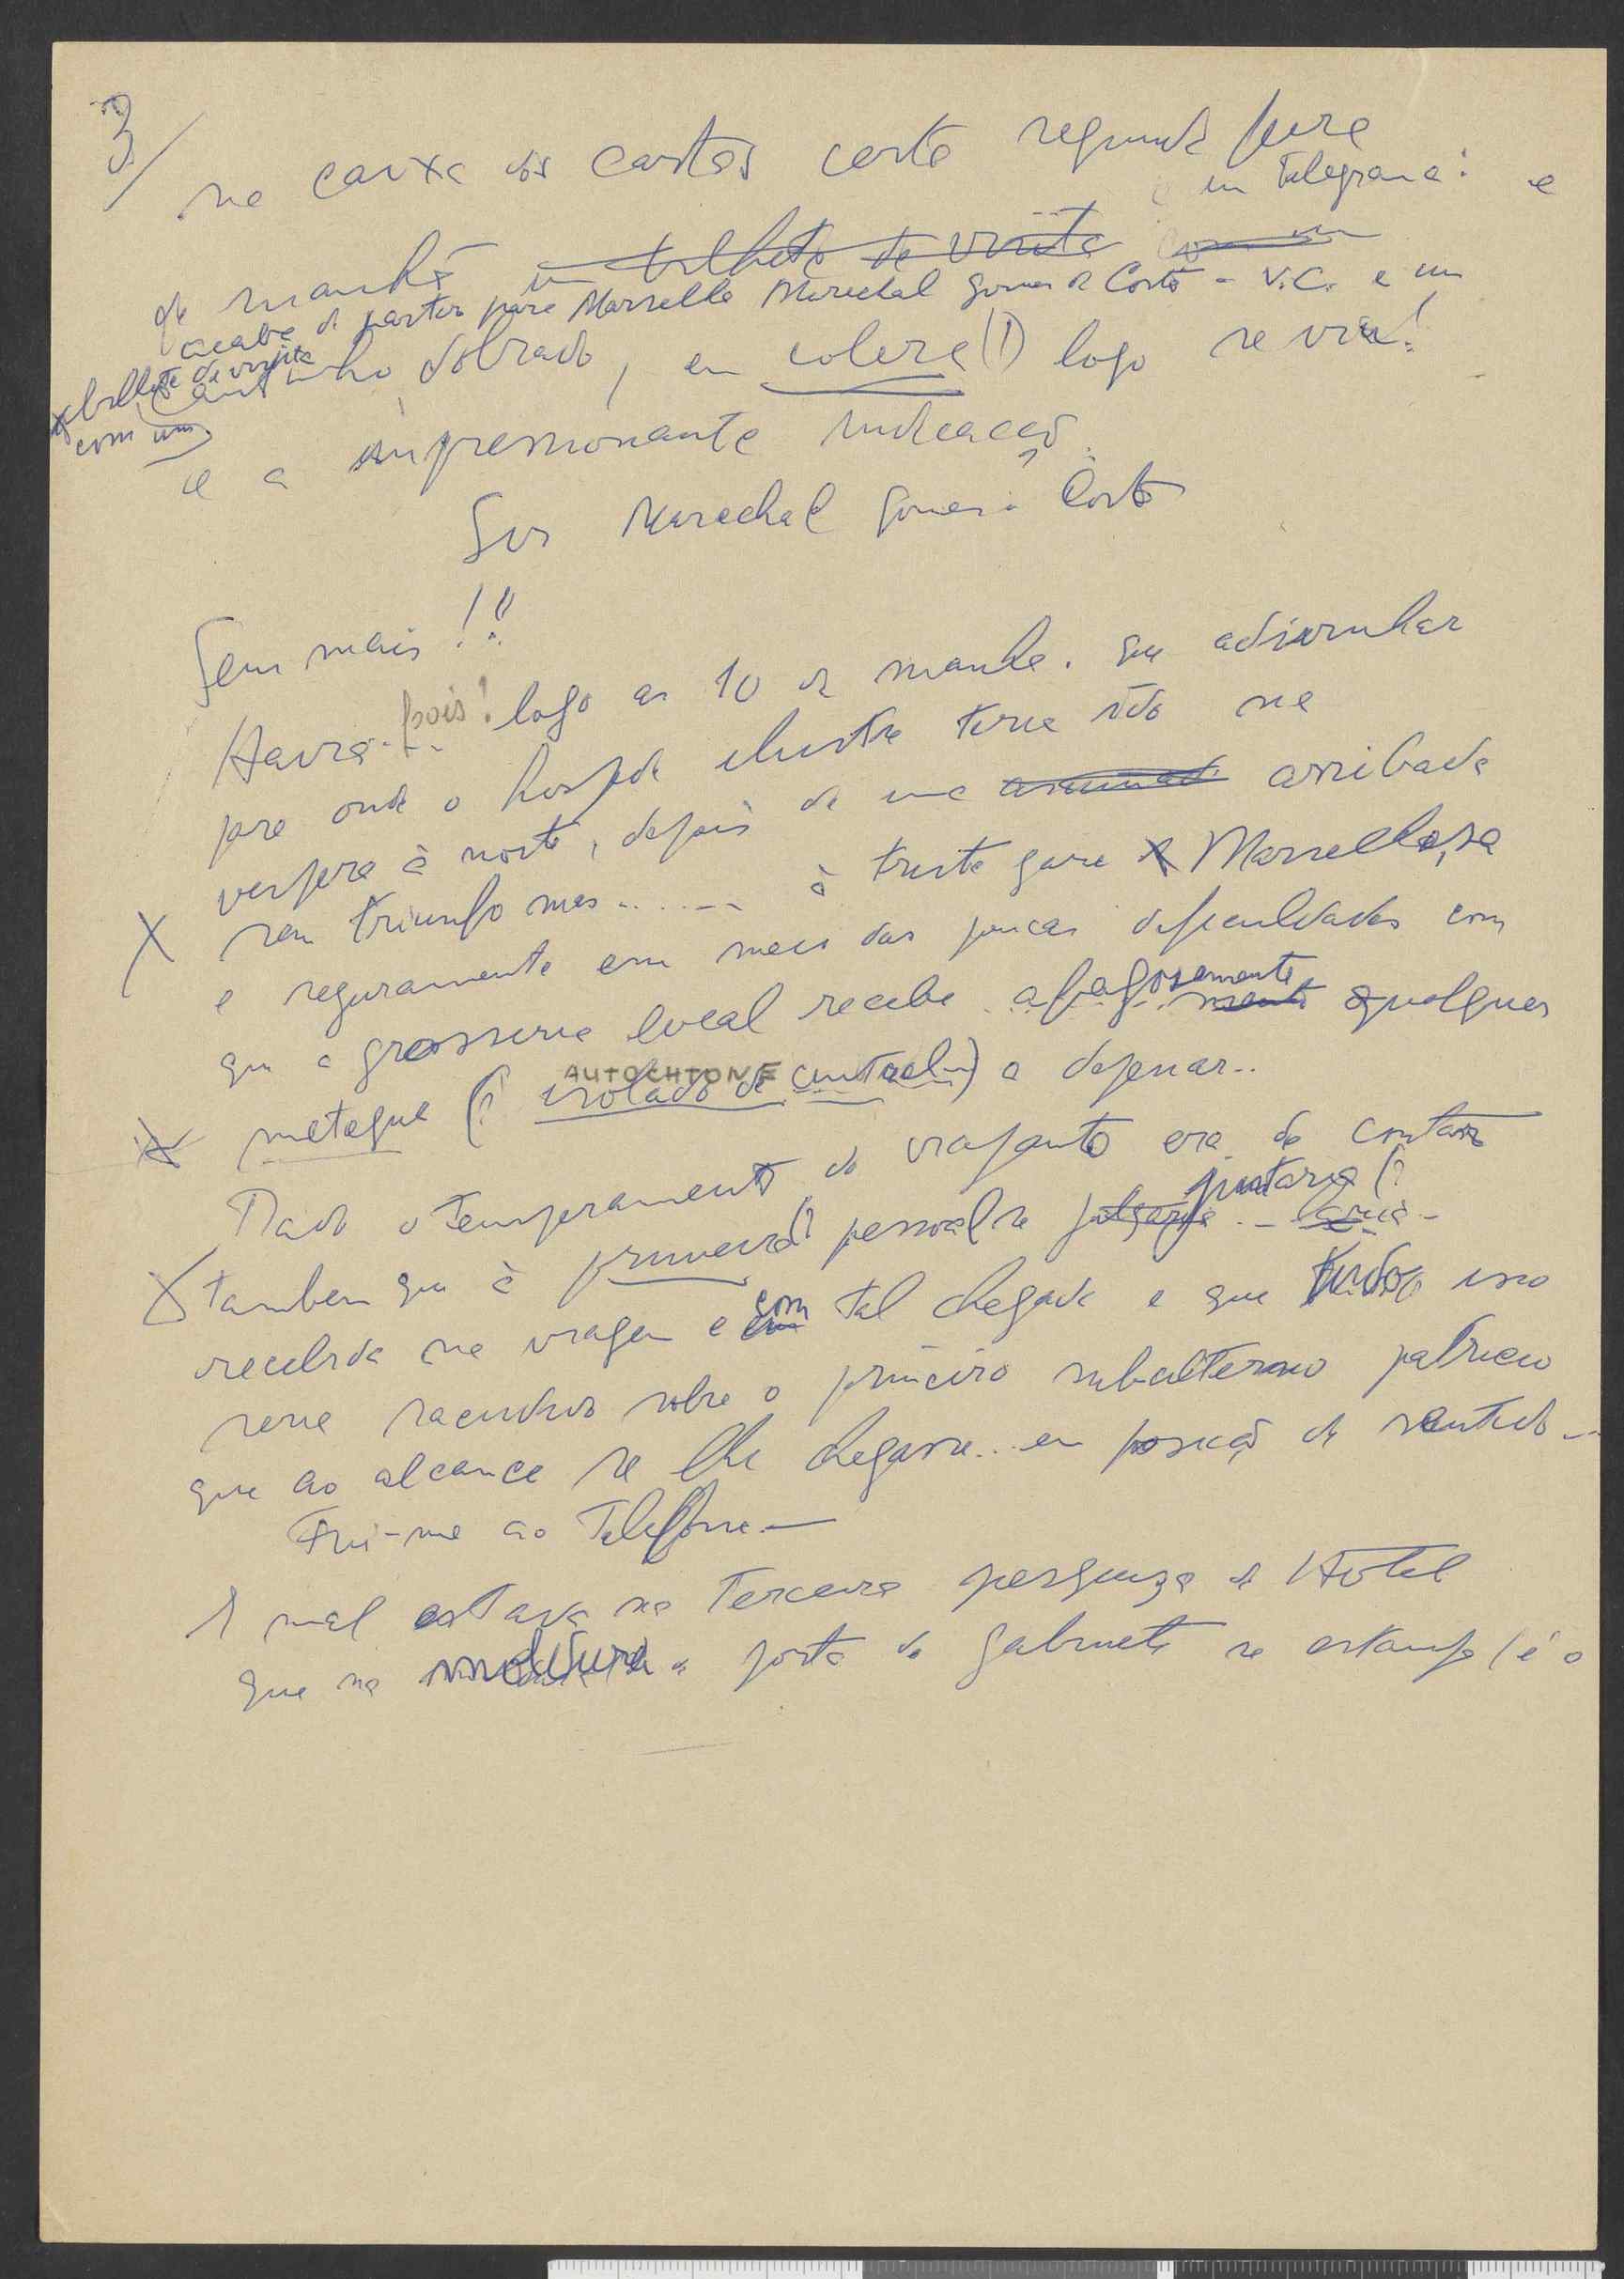 3/
na caixa das cartas certa segunda feira
um telegrama: e
de manhã um bilhete de visita com um
acaba de partir para Marselha Marechal Gomes da Costa - V.C. e um
bilhete de visita
com um
cantinho dobrado, em colera (!) logo se viu!
e a impressionante indicação
Gen Marechal Gomes da Costa
Sem mais!!
Havia pois! logo as 10 da manhã. que adivinhar
para onde o hospede ilustre teria ido na
vespera à noite, depois de uma arribada
X sem triunfo mas ...... à triste gare Marselhesa
e seguramente em meio das poucas dificuldades com
que a grosseria local recebe afagosamente qualquer
AUTOCHTONE
meteque (? isolado de ) a depenar..
Dado o temperamento do viajante era de contar
juntaria (?
X tambem que à primeira (? pessoal se
recebida na viagem e com tal chegada e que tudo isso
seria sacudido sobre o primeiro subalterno patricio
que ao alcance se lhe chegasse... em posição de sentido -
Fui-me ao Telefone. -
E mal estava na Terceira pesquiza de Hotel
que na moldura da porta do gabinete se estampa (é o